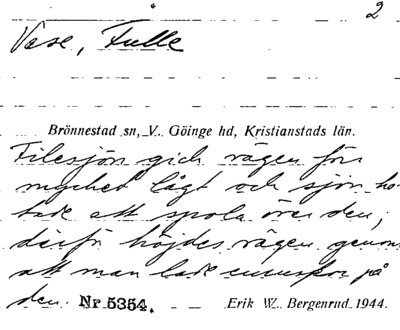 2
Vase, Fulle
Brönnestad sn, V. Göinge hd, Kristianstads län.
Filesjön gick vägen för
mycket lågt och sjön ho-
tade att spola över den;
därför höjdes vägen genom
att man lade enruskor på
den. Nr 5354.
Erik W. Bergenrud 1944.